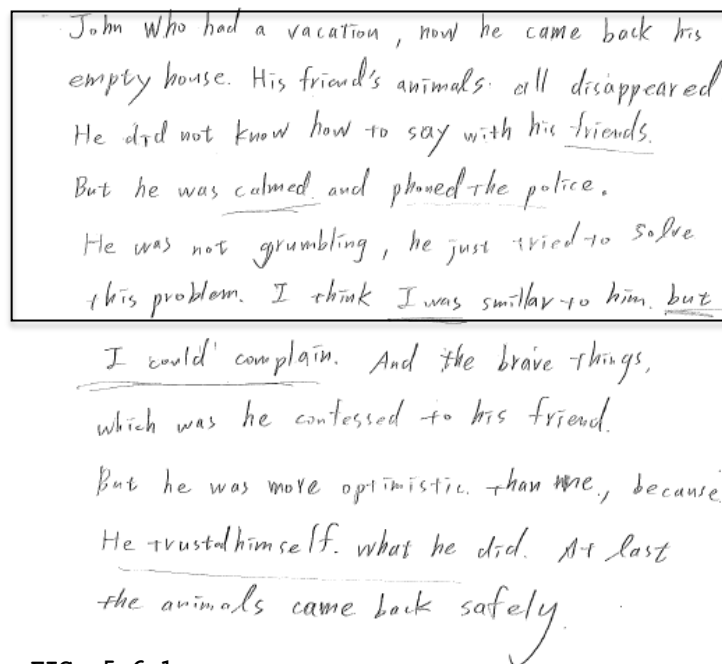 John who had a vacation, now he came back his
empty house. His friend's animals. all disappeared
He did not know how to say with his friends.
But he was calmed. and phoned the police.
He was not grumbling, he just tried to solve
this problem. I think I was smillar to him. but
I could' complain. And the brave things,
which was he contessed to his friend.
But he was more optimistic. than me., because
He trusted himself. what he did. At last
the animals came back safely.